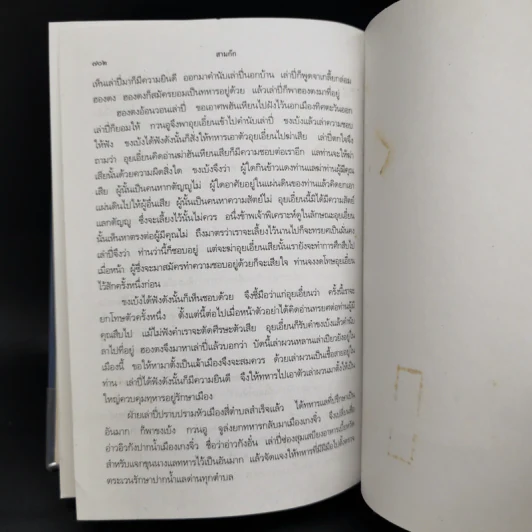 ๗๐๒
สามก๊ก
เห็นเล่าปี่มาก็มีความยินดี ออกมาคำนับเล่าปี่นอกบ้าน เล่าปี่ก็พูดจาเกลี้ยกล่อม
ฮองตง ฮองตงก็สมัครยอมเป็นทหารอยู่ด้วย แล้วเล่าปี่ก็พาฮองตงมาที่อยู่
ฮองตงอ้อนวอนเล่าปี่ ขอเอาศพฮันเหียนไปฝังไว้นอกเมืองทิศตะวันออก
เล่าปี่ก็ยอมให้ กวนอูจึงพาอุยเอี๋ยนเข้าไปคำนับเล่าปี่ ขงเบ้งแล้วเล่าความชอบ
ให้ฟัง ขงเบ้งได้ฟังดังนั้นก็สั่งให้ทหารเอาตัวอุยเอี๋ยนไปฆ่าเสีย เล่าปี่ตกใจจึง
ถามว่า อุยเอี๋ยนคิดอ่านฆ่าฮันเหียนเสียก็มีความชอบต่อเราอีก แลท่านจะให้ฆ่า
เสียนั้นด้วยความผิดสิ่งใด ขงเบ้งจึงว่า ผู้ใดกินข้าวแดงท่านแลฆ่าท่านผู้มีคุณ
เสีย ผู้นั้นเป็นคนหากตัญญูไม่ ผู้ใดอาศัยอยู่ในแผ่นดินของท่านแล้วคิดยกเอา
แผ่นดินไปให้ผู้อื่นเสีย ผู้นั้นเป็นคนหาความสัตย์ไม่ อุยเอี๋ยนนี้มิได้มีความสัตย์
แลกตัญญู ซึ่งจะเลี้ยงไว้นั้นไม่ควร อนึ่งข้าพเจ้าพิเคราะห์ดูในลักษณะอุยเอี๋ยน
นั้นเห็นหาตรงต่อผู้มีคุณไม่ ถึงมาตรว่าเราจะเลี้ยงไว้นานไปก็จะทรยศเป็นมั่นคง
เล่าปี่จึงว่า ท่านว่านี้ก็ชอบอยู่ แต่จะฆ่าอุยเอี๋ยนเสียนั้นเรายังจะทำการศึกสืบไป
เมื่อหน้า ผู้ซึ่งจะมาสมัครทำความชอบอยู่ด้วยก็จะเสียใจ ท่านจงงดโทษอุยเอี๋ยน
ไว้สักครั้งหนึ่งก่อน
ขงเบ้งได้ฟังดังนั้นก็เห็นชอบด้วย จึงชี้มือว่าแก่อุยเอี๋ยนว่า ครั้งนี้เราจะ
ยกโทษตัวครั้งหนึ่ง ตั้งแต่นี้ต่อไปเมื่อหน้าตัวอย่าได้คิดอ่านทรยศต่อท่านผู้มี
คุณสืบไป แม้ไม่ฟังคำเราจะตัดศีรษะตัวเสีย อุยเอี๋ยนก็รับคำขงเบ้งแล้วคำนับ
ลาไปที่อยู่ ฮองตงจึงมาหาเล่าปี่แล้วบอกว่า บัดนี้เล่าผวนหลานเล่าเปียวยังอยู่ใน
เมืองนี้ ขอให้หามาตั้งเป็นเจ้าเมืองจึงจะสมควร ด้วยเล่าผวนเป็นเชื้อสายอยู่ใน
ท่าน เล่าปี่ได้ฟังดังนั้นก็มีความยินดี จึงให้ทหารไปเอาตัวเล่าผวนมาตั้งให้เป็น
ใหญ่ควบคุมทหารอยู่รักษาเมือง
ฝ่ายเล่าปี่ปราบปรามหัวเมืองสี่ตำบลสำเร็จแล้ว ได้ทหารแลที่ปรึกษาเป็น
อันมาก ก็พาขงเบ้ง กวนอู จูล่งยกทหารกลับมาเมืองเกงจิ๋ว จึงเปลี่ยนชื่อ
อ่าวอิวกังปากน้ำเมืองเกงจิ๋ว ชื่อว่าอ่าวกังอั๋น เล่าปี่ซ่องสุมเสบียงอาหาร
สำหรับแจกขุนนางแลทหารไว้เป็นอันมาก แล้วจัดแจงให้ทหารที่มีฝีมือไปตั้ง
ตระเวนรักษาปากน้ำแลด่านทุกตำบล